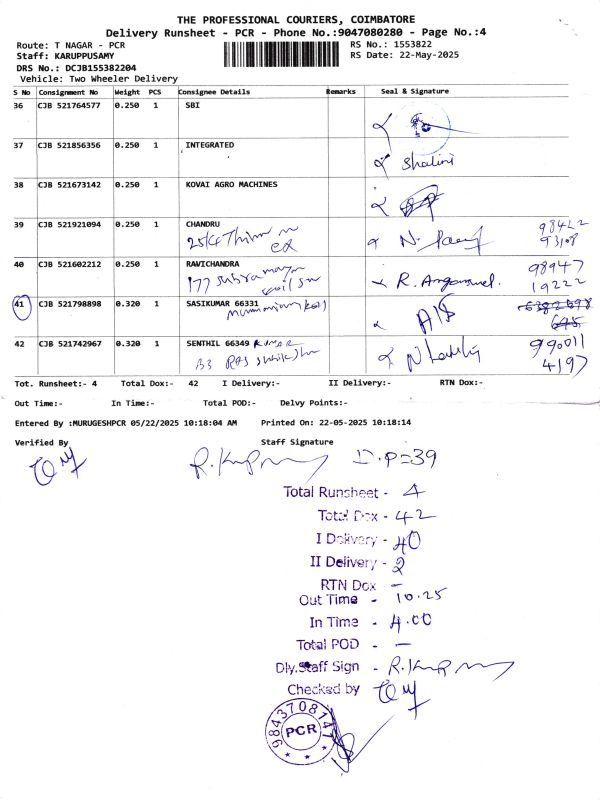 THE PROFESSIONAL COURIERS, COIMBATORE
Delivery Runsheet - PCR - Phone No.:9047080280 - Page No.:4
Route: T NAGAR - PCR RS No.: 1553822
Staff: KARUPPUSAMY RS Date: 22-May-2025
DRS No.: DCJB155382204
Vehicle: Two Wheeler Delivery
S No Consignment No Weight PCS Consignee Details Remarks Seal & Signature
36 CJB 521764577 0.250 1 SBI
37 CJB 521856356 0.250 1 INTEGRATED
Shalini
38 CJB 521673142 0.250 1 KOVAI AGRO MACHINES
39 CJB 521921094 0.250 1 CHANDRU
98422
93108
40 CJB 521602212 0.250 1 RAVICHANDRA
98947
177 R. 19222
41 CJB 521798898 0.320 1 SASIKUMAR 66331
42 CJB 521742967 0.320 1 SENTHIL 66349 Kumar
990011
B3 4197
Tot. Runsheet:- 4 Total Dox:- 42 I Delivery:- II Delivery:- RTN Dox:-
Out Time:- In Time:- Total POD:- Delvy Points:-
Entered By :MURUGESHPCR 05/22/2025 10:18:04 AM Printed On: 22-05-2025 10:18:14
Verified By Staff Signature
D.P=39
Total Runsheet - 4
Total Dox - 42
I Delivery - 40
II Delivery - 2
RTN Dox -
Out Time - 10.25
In Time - 4.00
Total POD - —
Dly.Staff Sign -
Checked by
9843708147
PCR